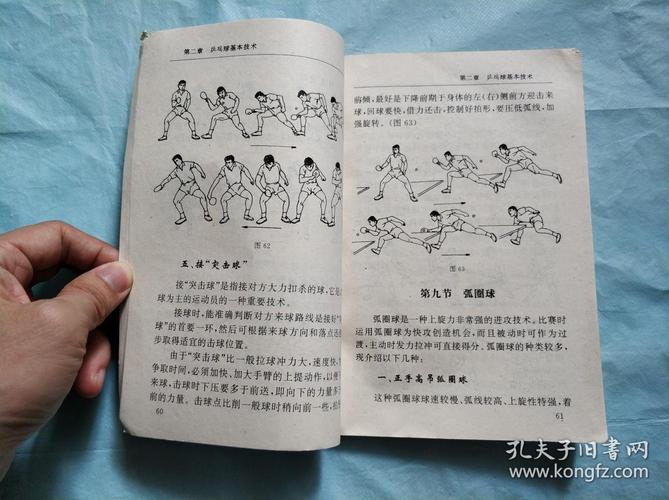 第二章 乒乓球基本技术
图62
五、接“突击球”
接“突击球”是指接对方大力扣杀的球,它是
球为主的运动员的一种重要技术。
接球时,能准确判断对方来球路线是接好“
球”的首要一环,然后可根据来球方向和落点
步取得适宜的击球位置。
由于“突击球”比一般拉球冲力大,速度快,
争取时间,必须加快、加大手臂的上提动作,以
来球,击球时下压要多于前送,即向下的力量
前的力量。击球点比削一般球时稍向前一些,
60
第二章 乒乓球基本技术
前倾,最好是下降前期于身体的左(右)侧前方迎击来
球,回球要快,借力还击,控制好拍形,要压低弧线,加
强旋转。(图63)
图63
第九节 弧圈球
弧圈球是一种上旋力非常强的进攻技术。比赛时
运用弧圈球为快攻创造机会,而且被动时可作为过
渡,主动时发力拉冲可直接得分。弧圈球的种类较多,
现介绍以下几种:
一、正手高吊弧圈球
这种弧圈球球速较慢、弧线较高、上旋性特强,着
61
孔夫子旧书网
www.kongfz.com